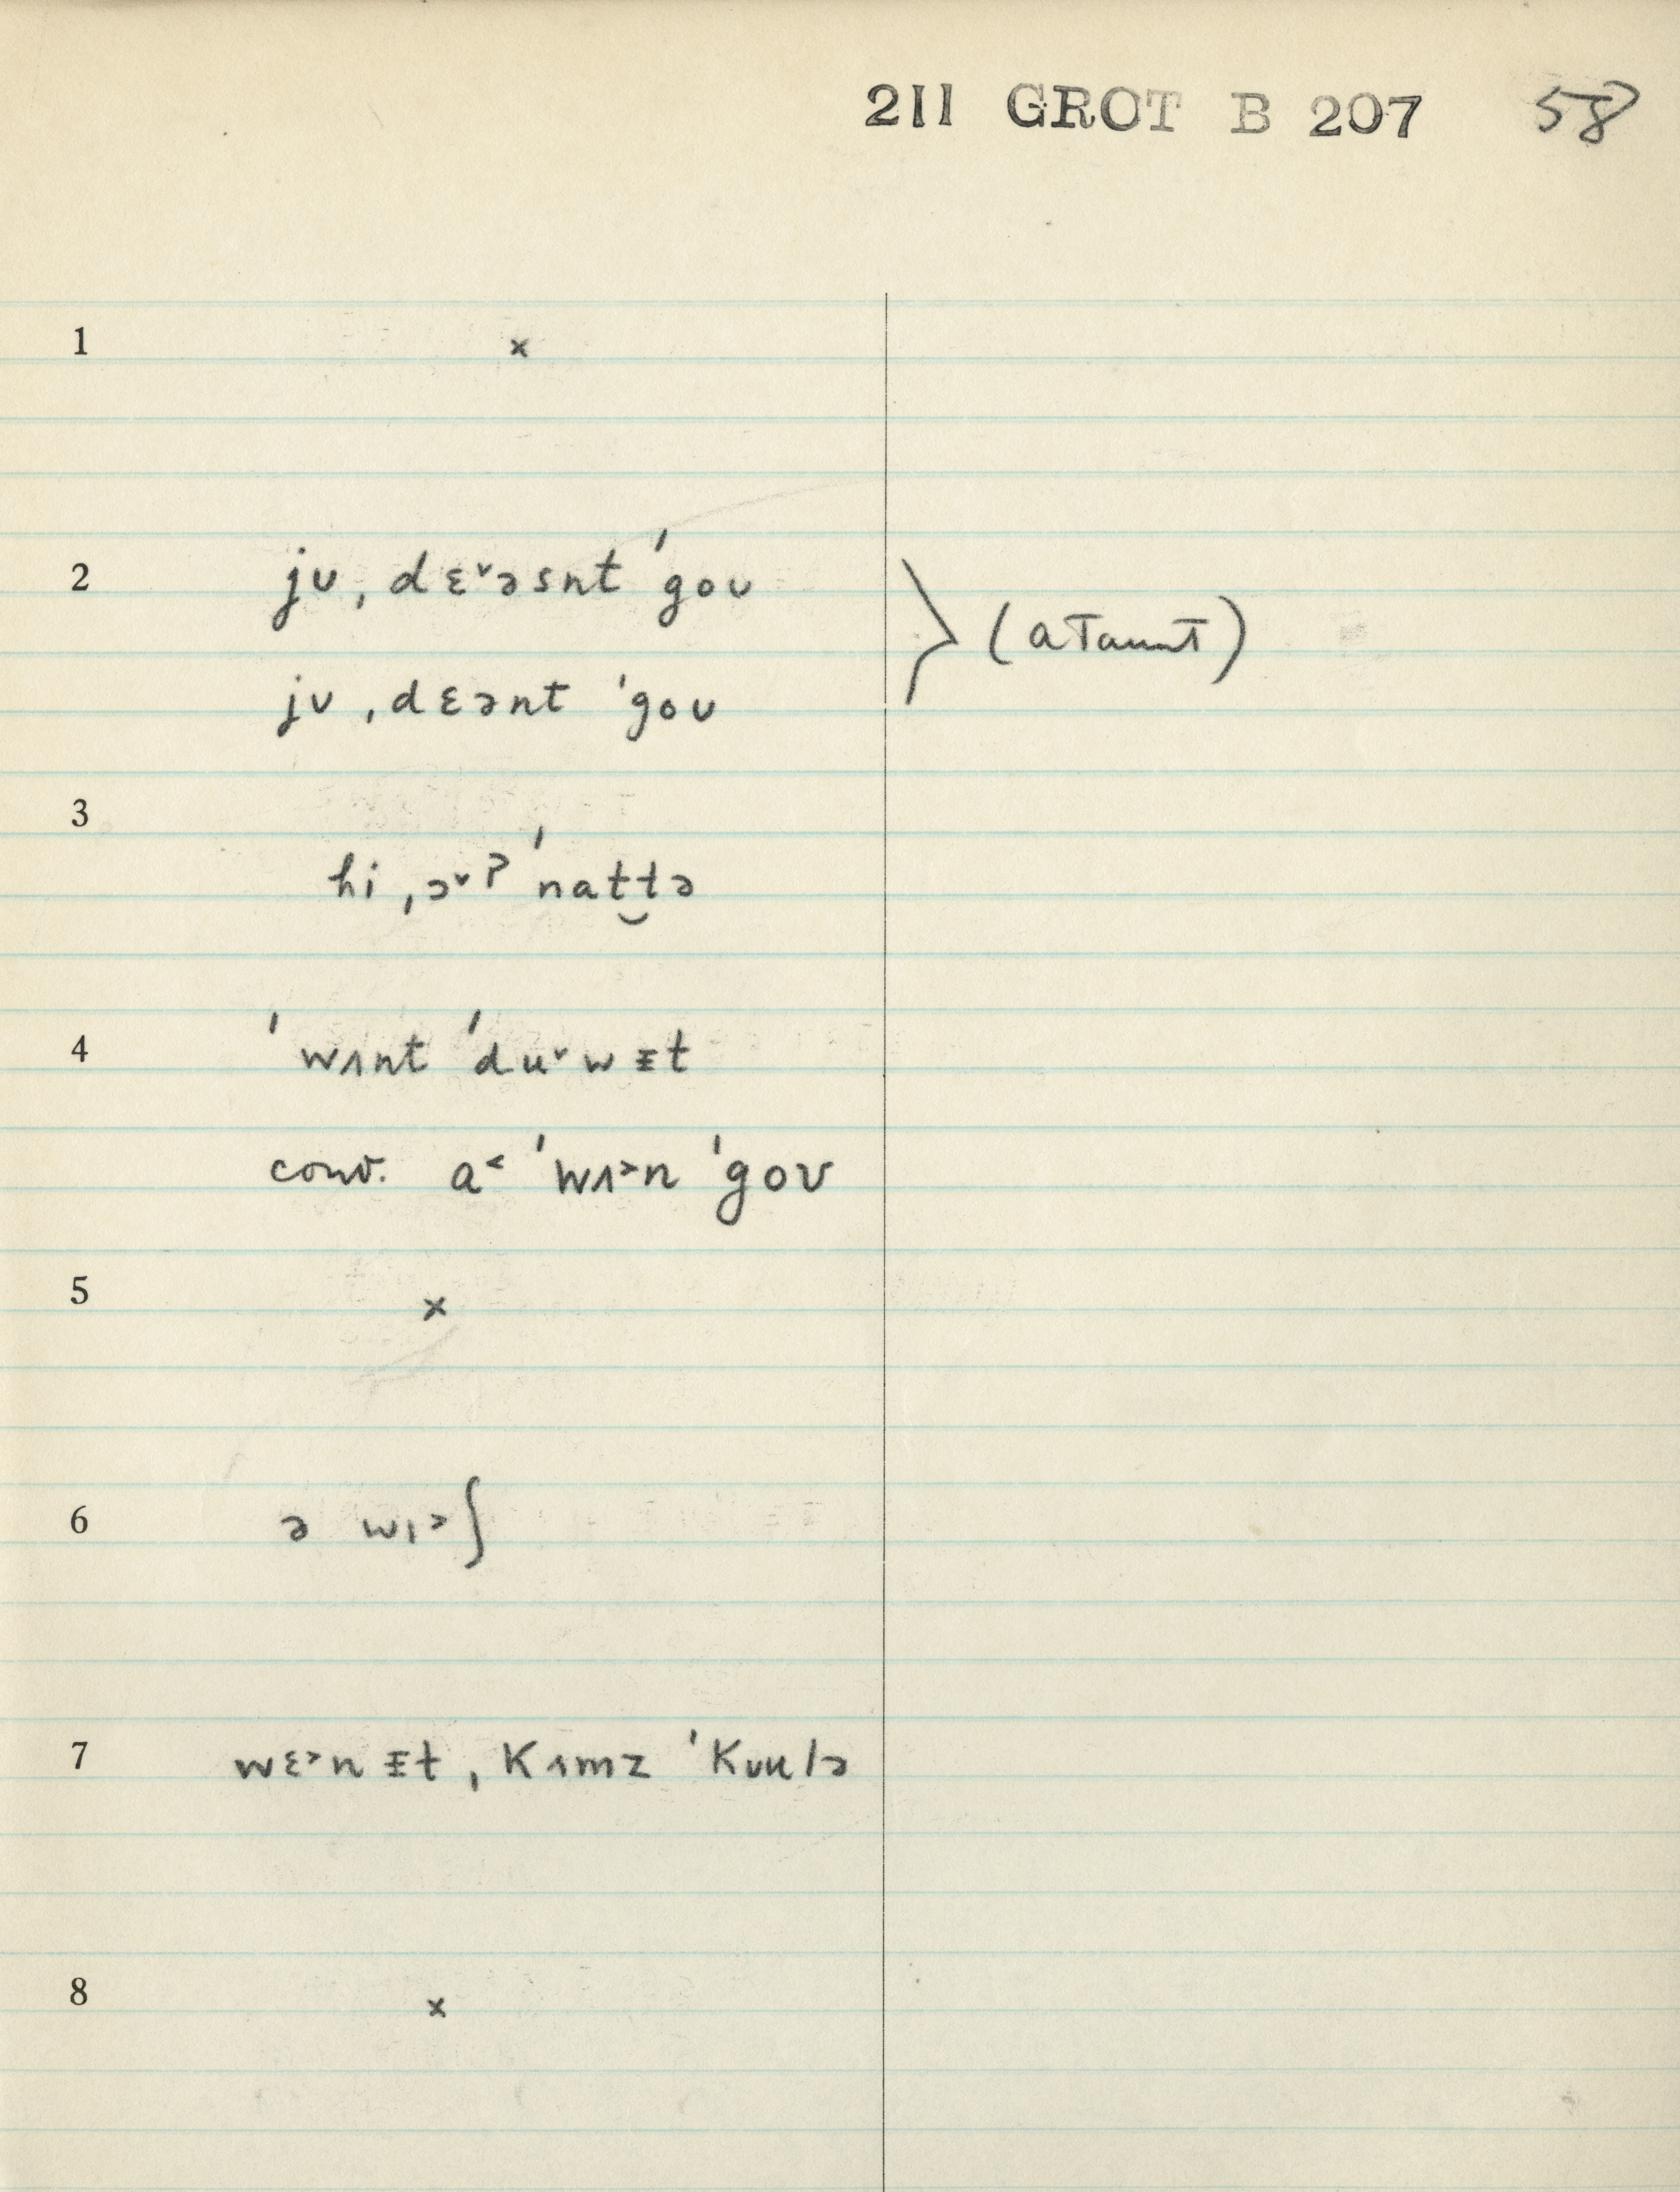 211 GROT B 207 58
1 ×
2 jʊ ˌdɛ˅əsnt ˈgoʊ
(a taunt)
jʊ ˌdɛənt ˈgoʊ
3
hi ˌɔ˅ʔ ˈnat‿tə
4 ˈwʌnt ˈdu˅wᵻt
conv. a˂ ˈwʌ˃n ˈgoʊ
5 ×
6 ə wɪ˃ʃ
7 wɛ˃nᵻt ˌkʌmz ˈkʊulə
8 ×